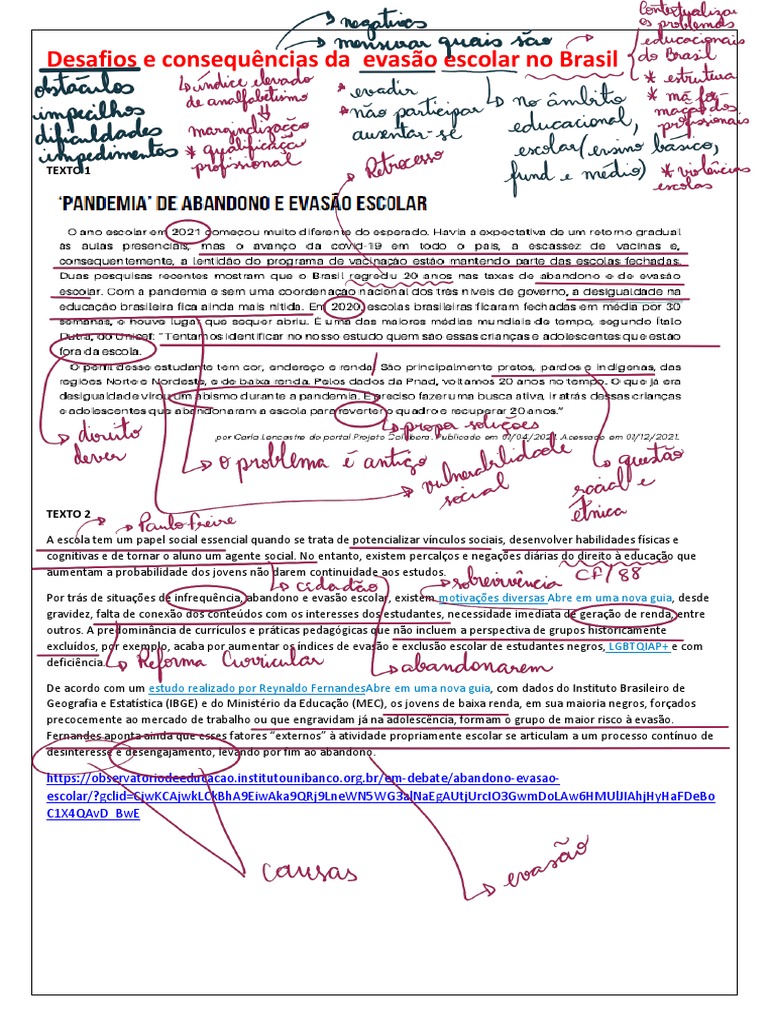 → negativas
→ mensurar quais são
Contextualizar
os problemas
educacionais
do Brasil
* estrutura
* má for-
mação dos
profissionais
* violências
escolas
Desafios e consequências da evasão escolar no Brasil
obstáculos
impecilhos
dificuldades
impedimentos
→ índice elevado
de analfabetismo
marginalização
* qualificação
profissional
* evadir
* não participar
ausentar-se
→ no âmbito
educacional,
escolar (ensino básico,
fund e médio)
Retrocesso
TEXTO 1
'PANDEMIA' DE ABANDONO E EVASÃO ESCOLAR
O ano escolar em 2021 começou muito diferente do esperado. Havia a expectativa de um retorno gradual
às aulas presenciais, mas o avanço da covid-19 em todo o país, a escassez de vacinas e,
consequentemente, a lentidão do programa de vacinação estão mantendo parte das escolas fechadas.
Duas pesquisas recentes mostram que o Brasil regrediu 20 anos nas taxas de abandono e de evasão
escolar. Com a pandemia e sem uma coordenação nacional dos três níveis de governo, a desigualdade na
educação brasileira fica ainda mais nítida. Em 2020, escolas brasileiras ficaram fechadas em média por 30
semanas, e houve lugar que sequer abriu. É uma das maiores médias mundiais de tempo, segundo Ítalo
Dutra, do Unicef: "Tentamos identificar no nosso estudo quem são essas crianças e adolescentes que estão
fora da escola.
O perfil desse estudante tem cor, endereço e renda. São principalmente pretos, pardos e indígenas, das
regiões Norte e Nordeste, e de baixa renda. Pelos dados da Pnad, voltamos 20 anos no tempo. O que já era
desigualdade virou um abismo durante a pandemia. É preciso fazer uma busca ativa, ir atrás dessas crianças
e adolescentes que abandonaram a escola para reverter o quadro e recuperar 20 anos."
por Carla Lencastre do portal Projeto Colabora. Publicado em 01/04/2021. Acessado em 01/12/2021.
→ direito
dever
→ propor soluções
→ o problema é antigo
→ vulnerabilidade
social
→ questão
social e
étnica
TEXTO 2
→ Paulo Freire
A escola tem um papel social essencial quando se trata de potencializar vínculos sociais, desenvolver habilidades físicas e
cognitivas e de tornar o aluno um agente social. No entanto, existem percalços e negações diárias do direito à educação que
aumentam a probabilidade dos jovens não darem continuidade aos estudos.
→ cidadão
→ sobrevivência
CF/88
Por trás de situações de infrequência, abandono e evasão escolar, existem motivações diversas Abre em uma nova guia, desde
gravidez, falta de conexão dos conteúdos com os interesses dos estudantes, necessidade imediata de geração de renda, entre
outros. A predominância de currículos e práticas pedagógicas que não incluem a perspectiva de grupos historicamente
excluídos, por exemplo, acaba por aumentar os índices de evasão e exclusão escolar de estudantes negros, LGBTQIAP+ e com
deficiência.
→ Reforma Curricular
→ abandonarem
De acordo com um estudo realizado por Reynaldo FernandesAbre em uma nova guia, com dados do Instituto Brasileiro de
Geografia e Estatística (IBGE) e do Ministério da Educação (MEC), os jovens de baixa renda, em sua maioria negros, forçados
precocemente ao mercado de trabalho ou que engravidam já na adolescência, formam o grupo de maior risco à evasão.
Fernandes aponta ainda que esses fatores "externos" à atividade propriamente escolar se articulam a um processo contínuo de
desinteresse e desengajamento, levando por fim ao abandono.
https://observatoriodeeducacao.institutounibanco.org.br/em-debate/abandono-evasao-
escolar/?gclid=CjwKCAjwkLCkBhA9EiwAka9QRj9LneWN5WG3alNaEgAUtjUrcIO3GwmDoLAw6HMUlJIAhjHyHaFDeBo
C1X4QAvD_BwE
causas
→ evasão